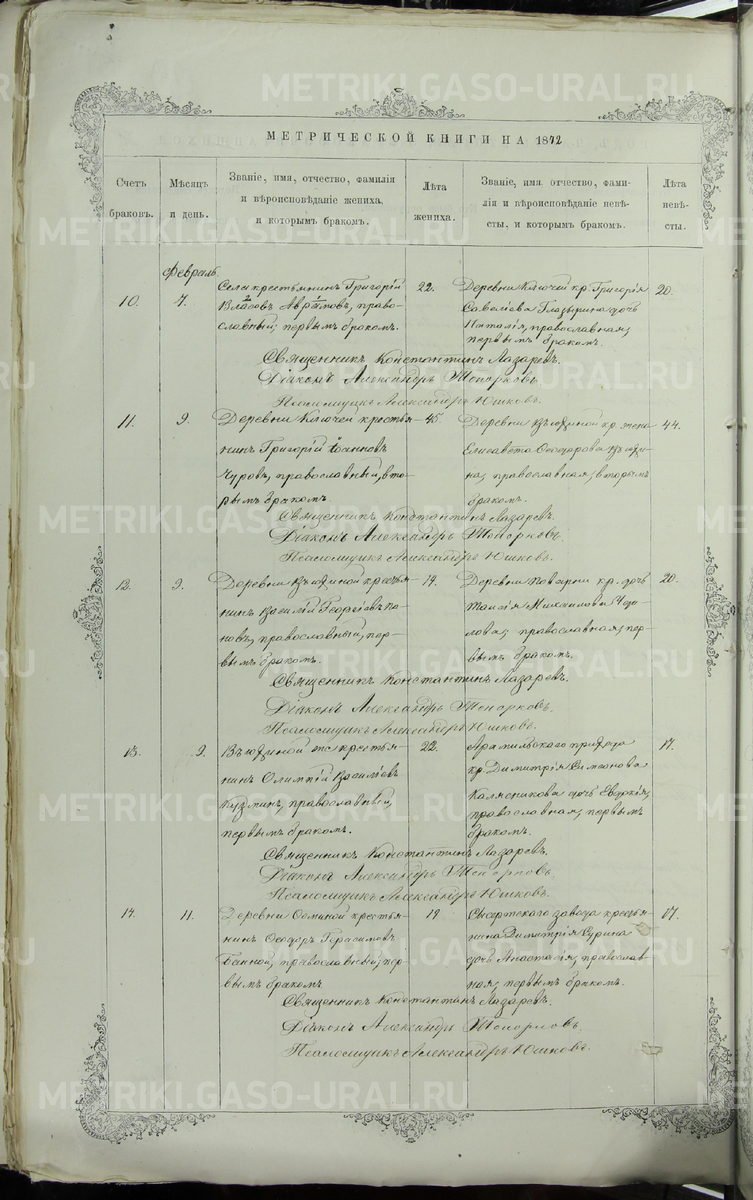 МЕТРИЧЕСКОЙ КНИГИ НА 1872
Счетъ браковъ.
Мѣсяцъ и день.
Званіе, имя, отчество, фамилія и вѣроисповѣданіе жениха, и которымъ бракомъ.
Лѣта жениха.
Званіе, имя, отчество, фамилія и вѣроисповѣданіе невѣсты, и которымъ бракомъ.
Лѣта невѣсты.
Февраль
10. 7. Села крестьянинъ Григорій 22. Деревни Ключей кр. Григорія 20.
Власовъ Аврамовъ, право- Савватіева Глазырина дочь
славный; первымъ бракомъ. Наталія, православная;
первымъ бракомъ.
Священникъ Константинъ Лазаревъ.
Діаконъ Александръ Топорковъ.
Псаломщикъ Александръ Юшковъ.
11. 9. Деревни Ключей крестья- 45. Деревни кр. жена 44.
нинъ Григорій Іоанновъ Елисавета Ѳеодорова
Чуровъ, православный, вто- православная; вторымъ
рымъ бракомъ. бракомъ.
Священникъ Константинъ Лазаревъ.
Діаконъ Александръ Топорковъ.
Псаломщикъ Александръ Юшковъ.
12. 9. Деревни крестья- 19. Деревни кр. дочь 20.
нинъ Василій Георгіевъ По- Таисія Михаилова
повъ, православный, пер- православная; пер-
вымъ бракомъ. вымъ бракомъ.
Священникъ Константинъ Лазаревъ.
Діаконъ Александръ Топорковъ.
Псаломщикъ Александръ Юшковъ.
13. 9. же крестья- 22. Арамильскаго прихода 17.
нинъ Олимпій Василіевъ кр. Димитрія Симеонова
Кузминъ, православный, Калясникова дочь Евдокія,
первымъ бракомъ. православная; первымъ
бракомъ.
Священникъ Константинъ Лазаревъ.
Діаконъ Александръ Топорковъ.
Псаломщикъ Александръ Юшковъ.
14. 11. Деревни крестья- 19 Сысертскаго завода крестья- 17.
нинъ Ѳеодоръ Герасимовъ нина Димитрія Сурина
православный; пер- дочь Анастасія, православ-
вымъ бракомъ ная; первымъ бракомъ.
Священникъ Константинъ Лазаревъ.
Діаконъ Александръ Топорковъ.
Псаломщикъ Александръ Юшковъ.
METRIKI.GASO-URAL.RU